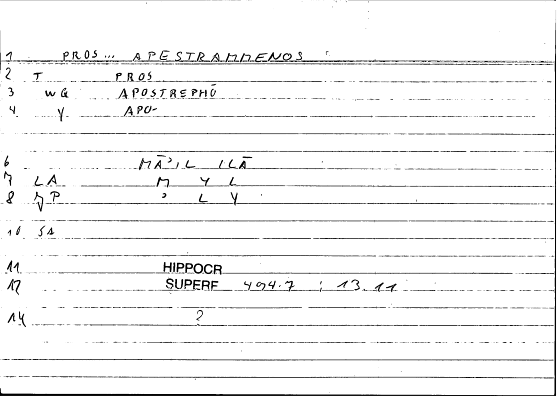 1 PROS... APESTRAMMENOS
2 T PROS
3 WG APOSTREPHŌ
4 Y APO-
6 MĀʾIL ILĀ
7 LA M Y L
8 MP ʾ L Y
10 SA
11 HIPPOCR
12 SUPERF 494.7 : 13.11
14 2